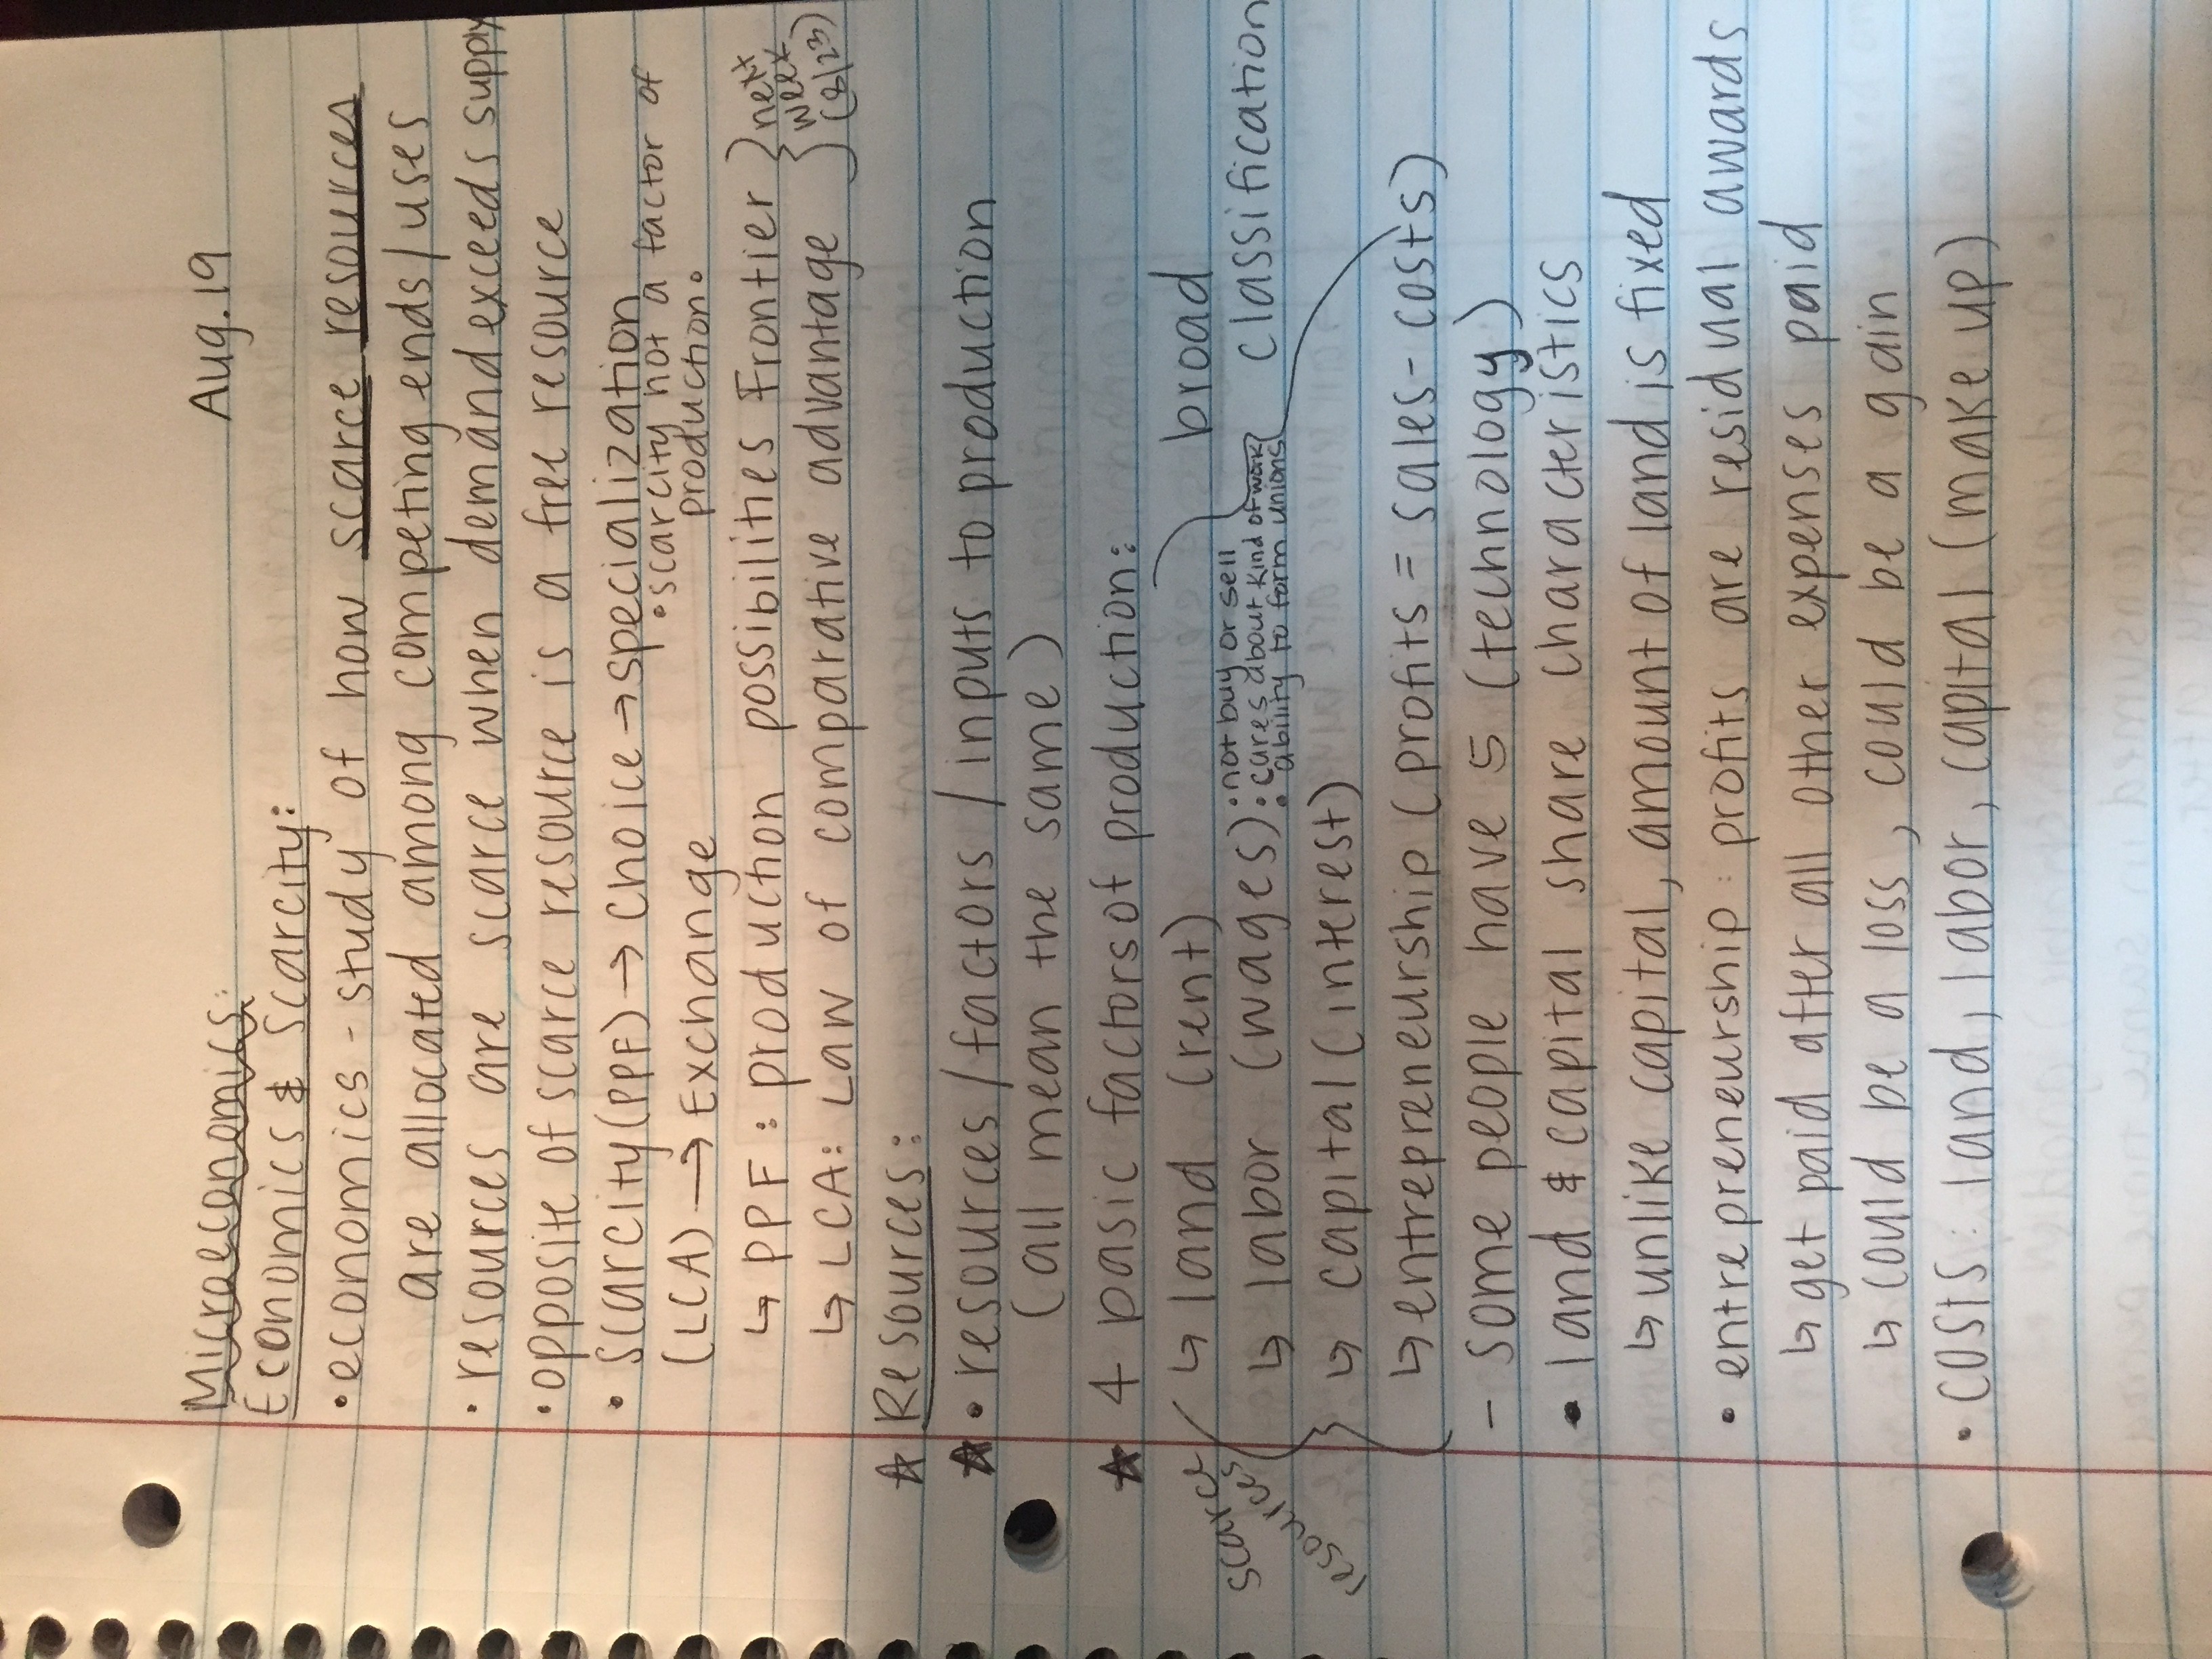 Aug.19
Microeconomics:
Economics & Scarcity:
• economics - study of how scarce resources
are allocated among competing ends/uses
• resources are scarce when demand exceeds supply
• opposite of scarce resource is a free resource
• Scarcity (PPF) → Choice → specialization
• scarcity not a factor of
production.
(LCA) → Exchange
↳ PPF: production possibilities Frontier } next
week
↳ LCA: Law of comparative advantage } (8/23)
☆ Resources:
★ • resources/factors/inputs to production
(all mean the same)
★ 4 basic factors of production:
↳ land (rent) broad
↳ labor (wages) • not buy or sell classification
• cares about kind of work
• ability to form unions
↳ capital (interest)
↳ entrepreneurship (profits = sales - costs)
scarce
resources
- some people have 5 (technology)
• land & capital share characteristics
↳ unlike capital, amount of land is fixed
• entrepreneurship: profits are residual awards
↳ get paid after all other expenses paid
↳ could be a loss, could be a gain
• costs: land, labor, capital (make up)